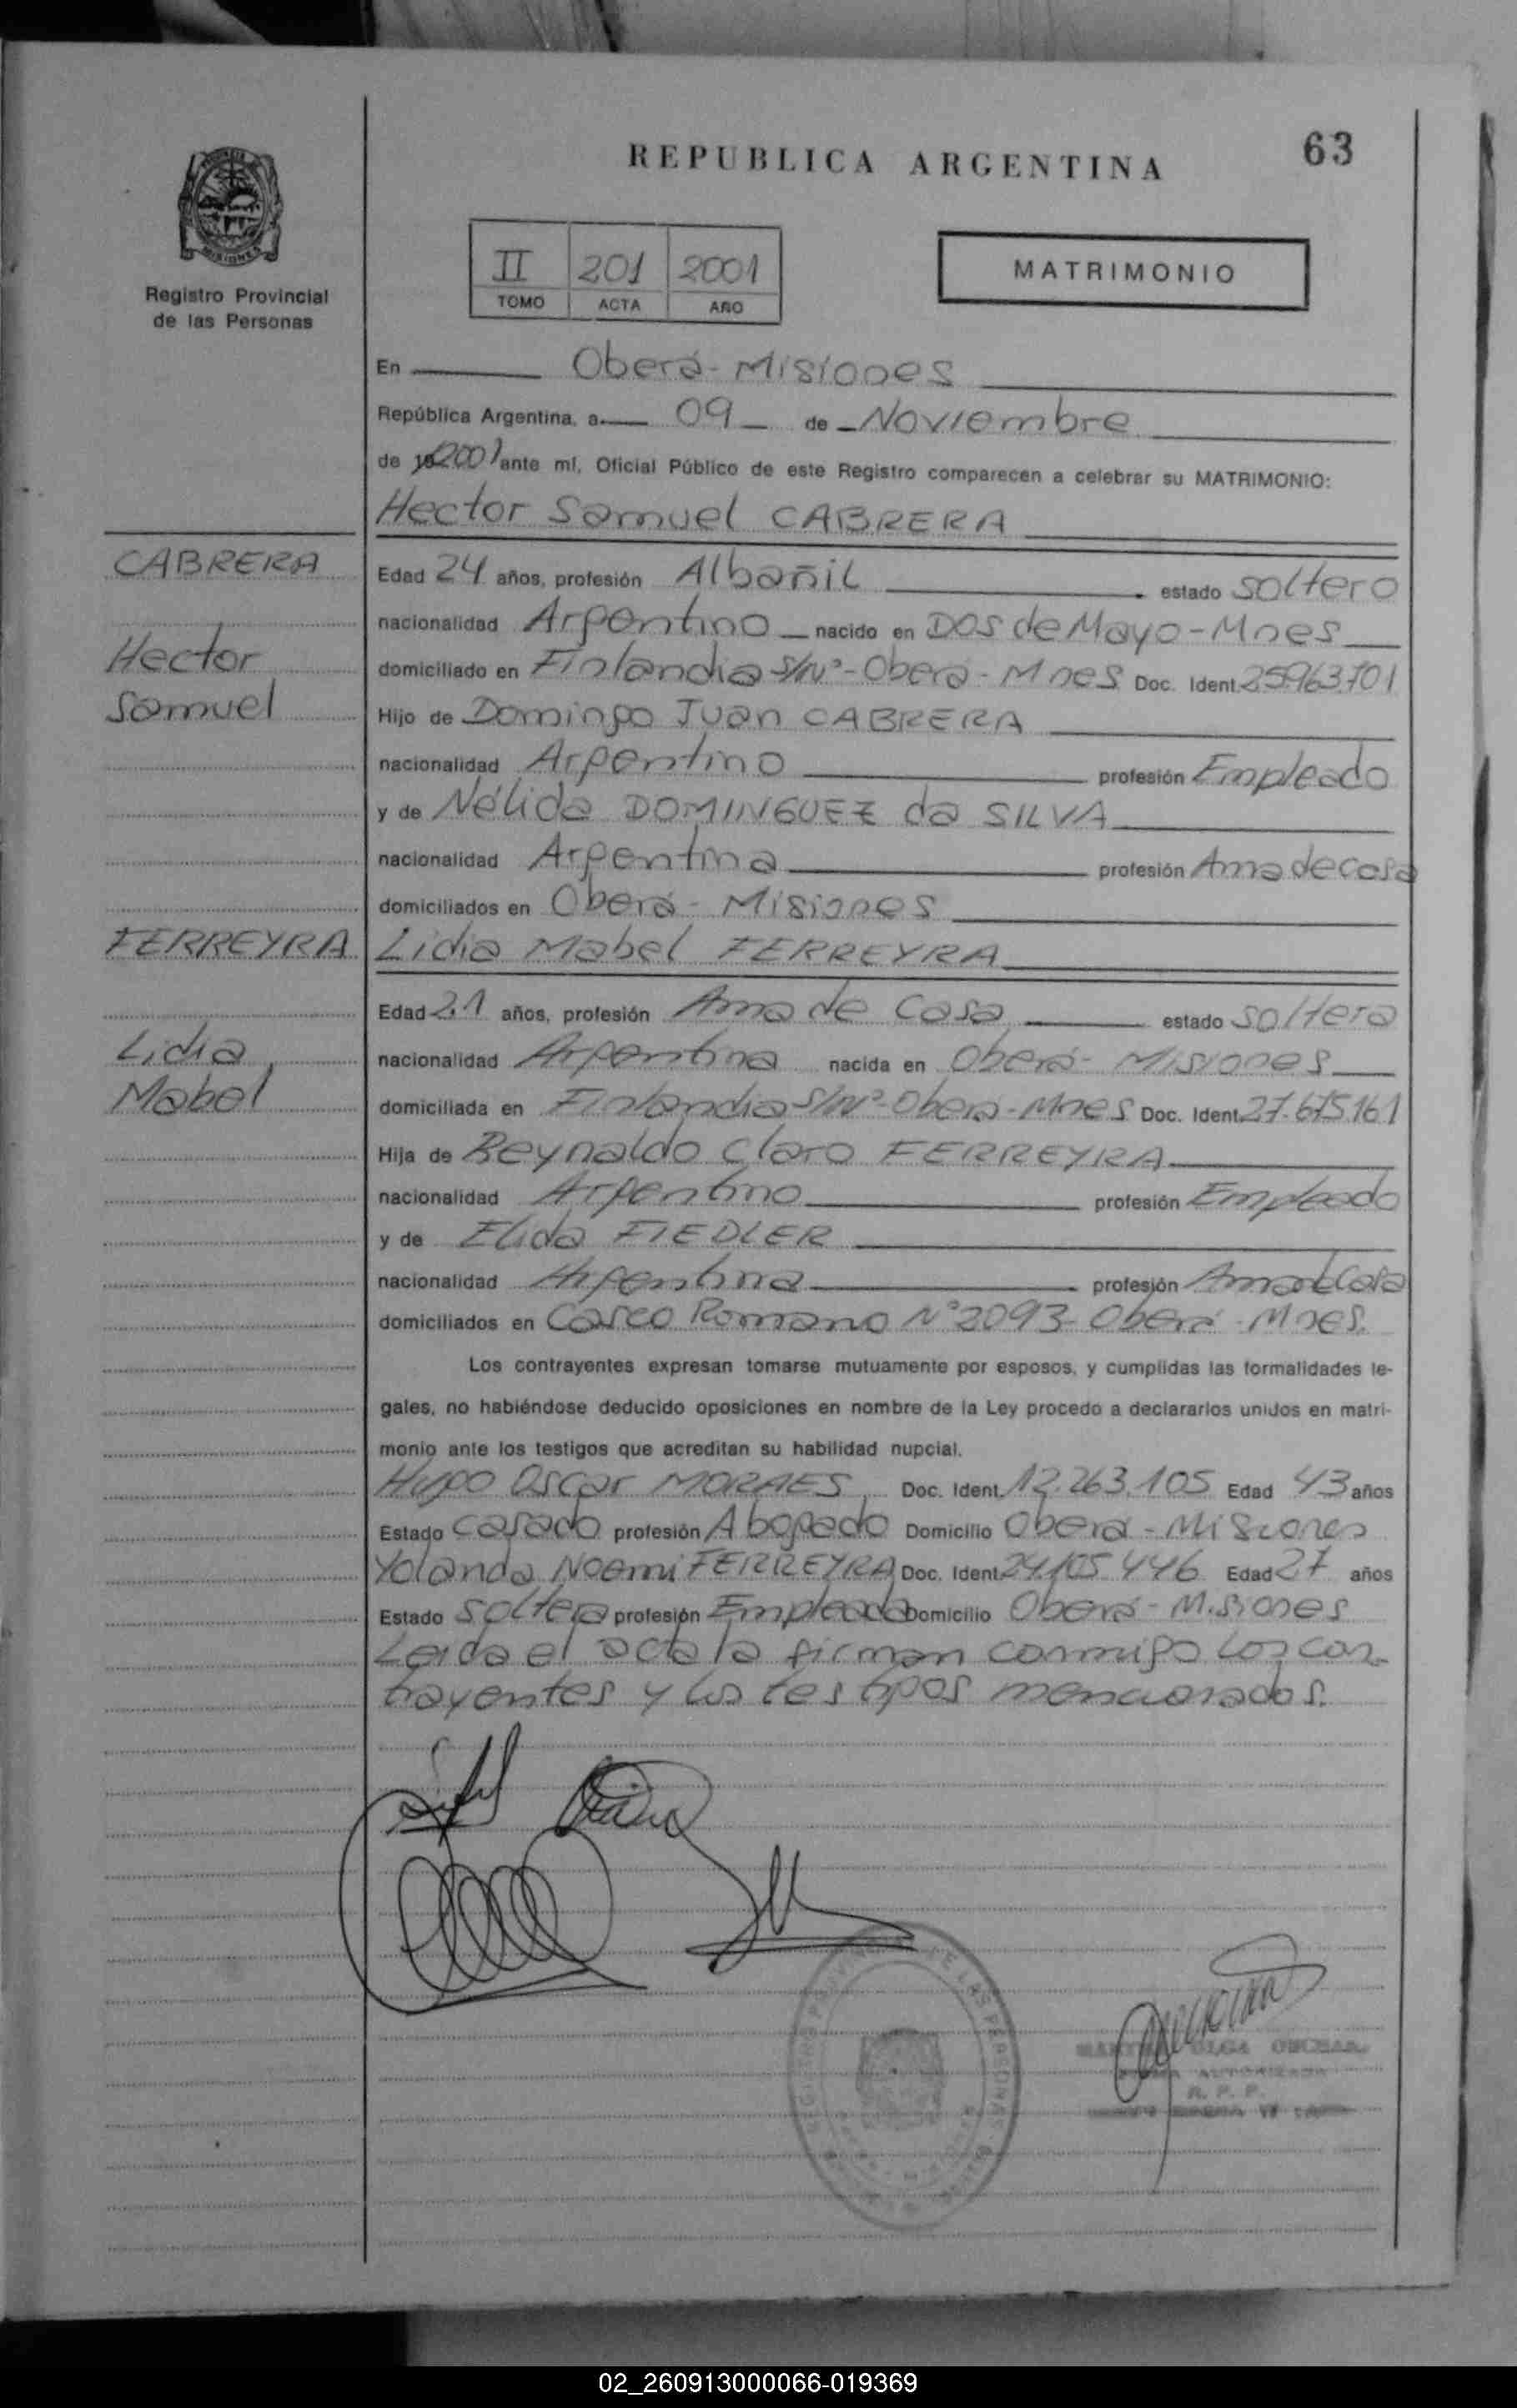 63
REPUBLICA ARGENTINA
MISIONES
Registro Provincial
de las Personas
II 201 2001
TOMO ACTA AÑO
MATRIMONIO
En Oberá - Misiones
República Argentina, a 09 de Noviembre
de 2001 ante mí, Oficial Público de este Registro comparecen a celebrar su MATRIMONIO:
Hector Samuel CABRERA
CABRERA
Edad 24 años, profesión Albañil estado soltero
nacionalidad Argentino nacido en Dos de Mayo - Mnes
Hector
domiciliado en Finlandia S/Nº - Oberá - Mnes Doc. Ident. 25.963.701
Samuel
Hijo de Domingo Juan CABRERA
nacionalidad Argentino profesión Empleado
y de Nélida DOMINGUEZ da SILVA
nacionalidad Argentina profesión Ama de casa
domiciliados en Oberá - Misiones
FERREYRA
Lidia Mabel FERREYRA
Edad 21 años, profesión Ama de Casa estado soltera
Lidia
nacionalidad Argentina nacida en Oberá - Misiones
Mabel
domiciliada en Finlandia S/Nº - Oberá - Mnes Doc. Ident. 27.675.161
Hija de Reynaldo Claro FERREYRA
nacionalidad Argentino profesión Empleado
y de Elida FIEDLER
nacionalidad Argentina profesión Ama de Casa
domiciliados en Casco Romano Nº 2093 - Oberá - Mnes.
Los contrayentes expresan tomarse mutuamente por esposos, y cumplidas las formalidades le-
gales, no habiéndose deducido oposiciones en nombre de la Ley procedo a declararlos unidos en matri-
monio ante los testigos que acreditan su habilidad nupcial.
Hugo Oscar MORAES Doc. Ident. 12.263.105 Edad 43 años
Estado casado profesión Abogado Domicilio Oberá - Misiones
Yolanda Noemi FERREYRA Doc. Ident. 24.105.446 Edad 27 años
Estado soltera profesión Empleada Domicilio Oberá - Misiones
Leida el acta la firman conmigo los con-
trayentes y los testigos mencionados.
OLGA
AUTORIZADA
R. P. P.
02_260913000066-019369